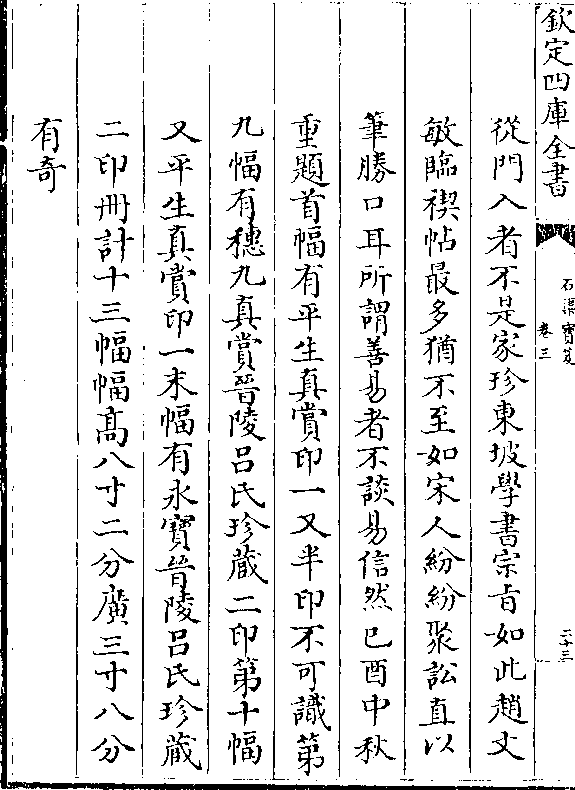 欽定四庫全書
石渠寶笈
卷三
二十三
從門入者不是家珍東坡學書宗旨如此趙文
敏臨禊帖最多猶不至如宋人紛紛聚訟直以
筆勝口耳所謂善易者不談易信然已酉中秋
重題首幅有平生真賞印一又半印不可識第
九幅有穗九真賞晉陵吕氏珍藏二印第十幅
又平生真賞印一末幅有永寶晉陵吕氏珍藏
二印冊計十三幅幅髙八寸二分廣三寸八分
有奇